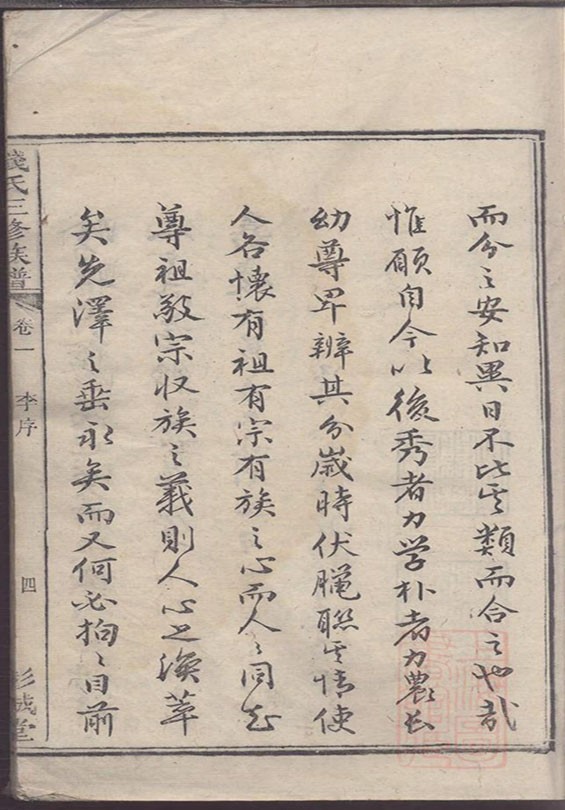 而分之安知異日不比其類而合之也哉
惟願自今以後秀者力學朴者力農長
幼尊卑辨其分歲時伏臘聯其情使
人各懷有祖有宗有族之心而人人同知
尊祖敬宗收族之義則人心之渙萃
矣先澤之垂永矣而又何必拘拘目前
錢氏三修族譜
卷一
李序
四
彭城堂